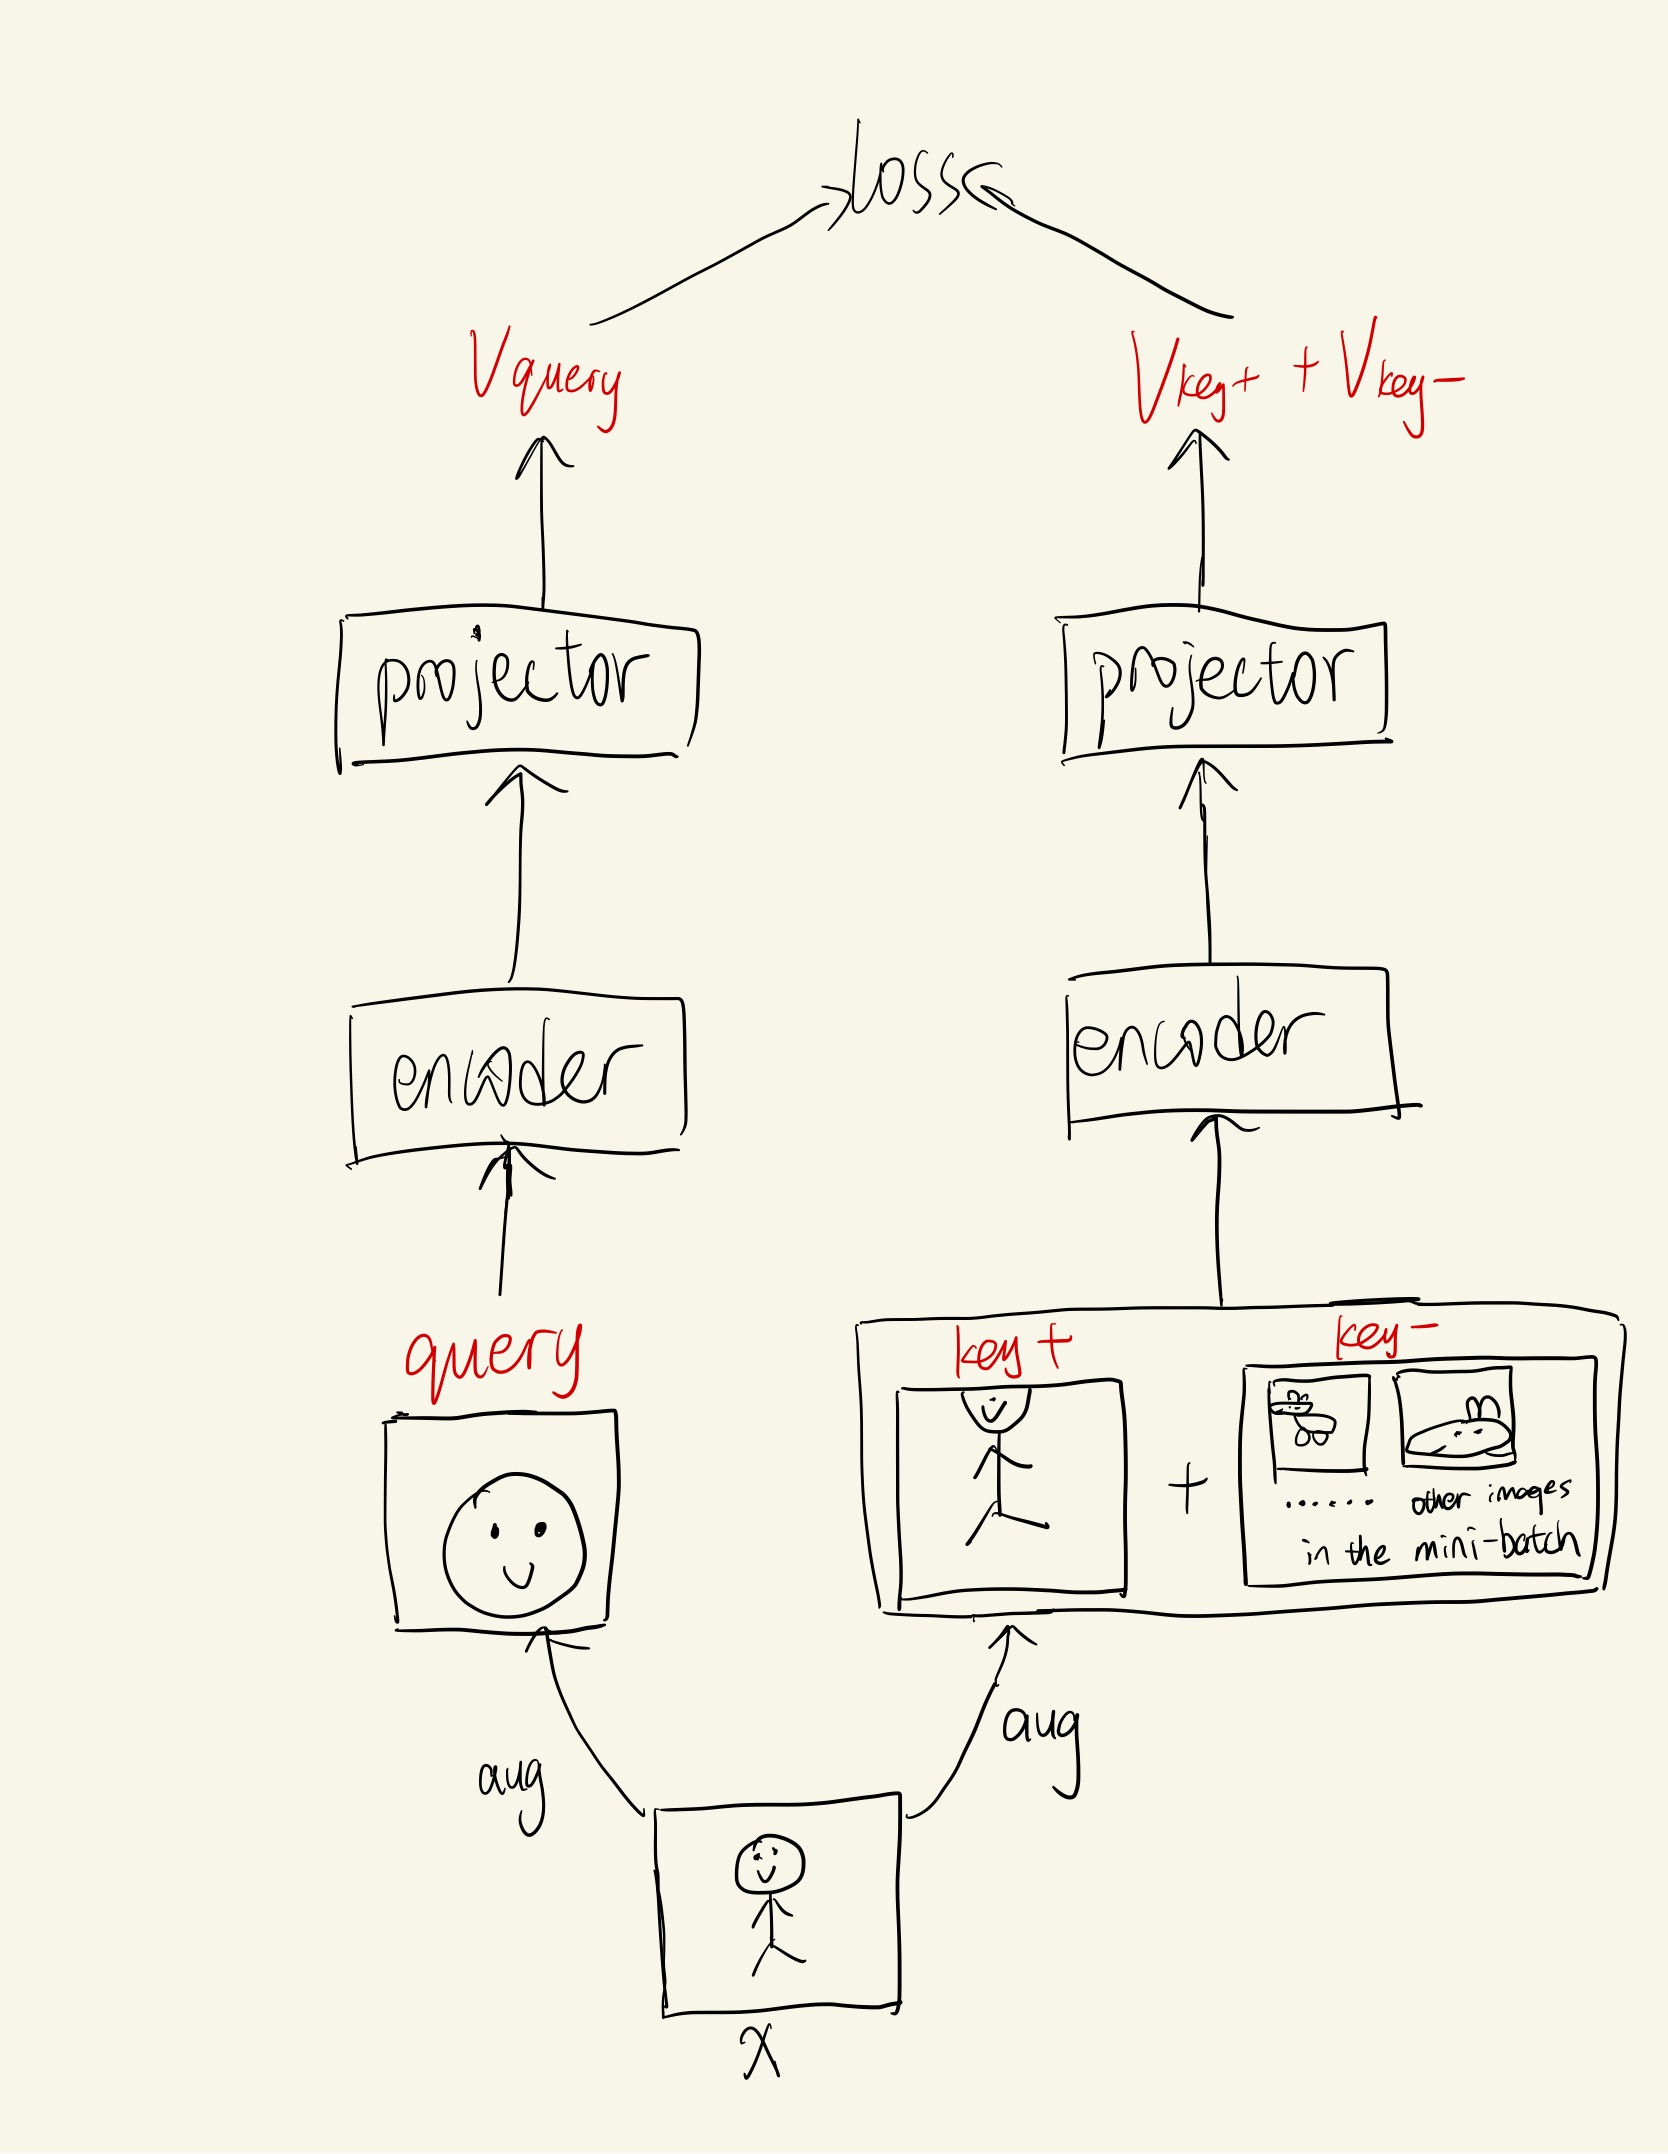 loss
Vquery
Vkey+ + Vkey-
projector
projector
encoder
encoder
query
key+
key-
+
...... other images
in the mini-batch
aug
aug
x